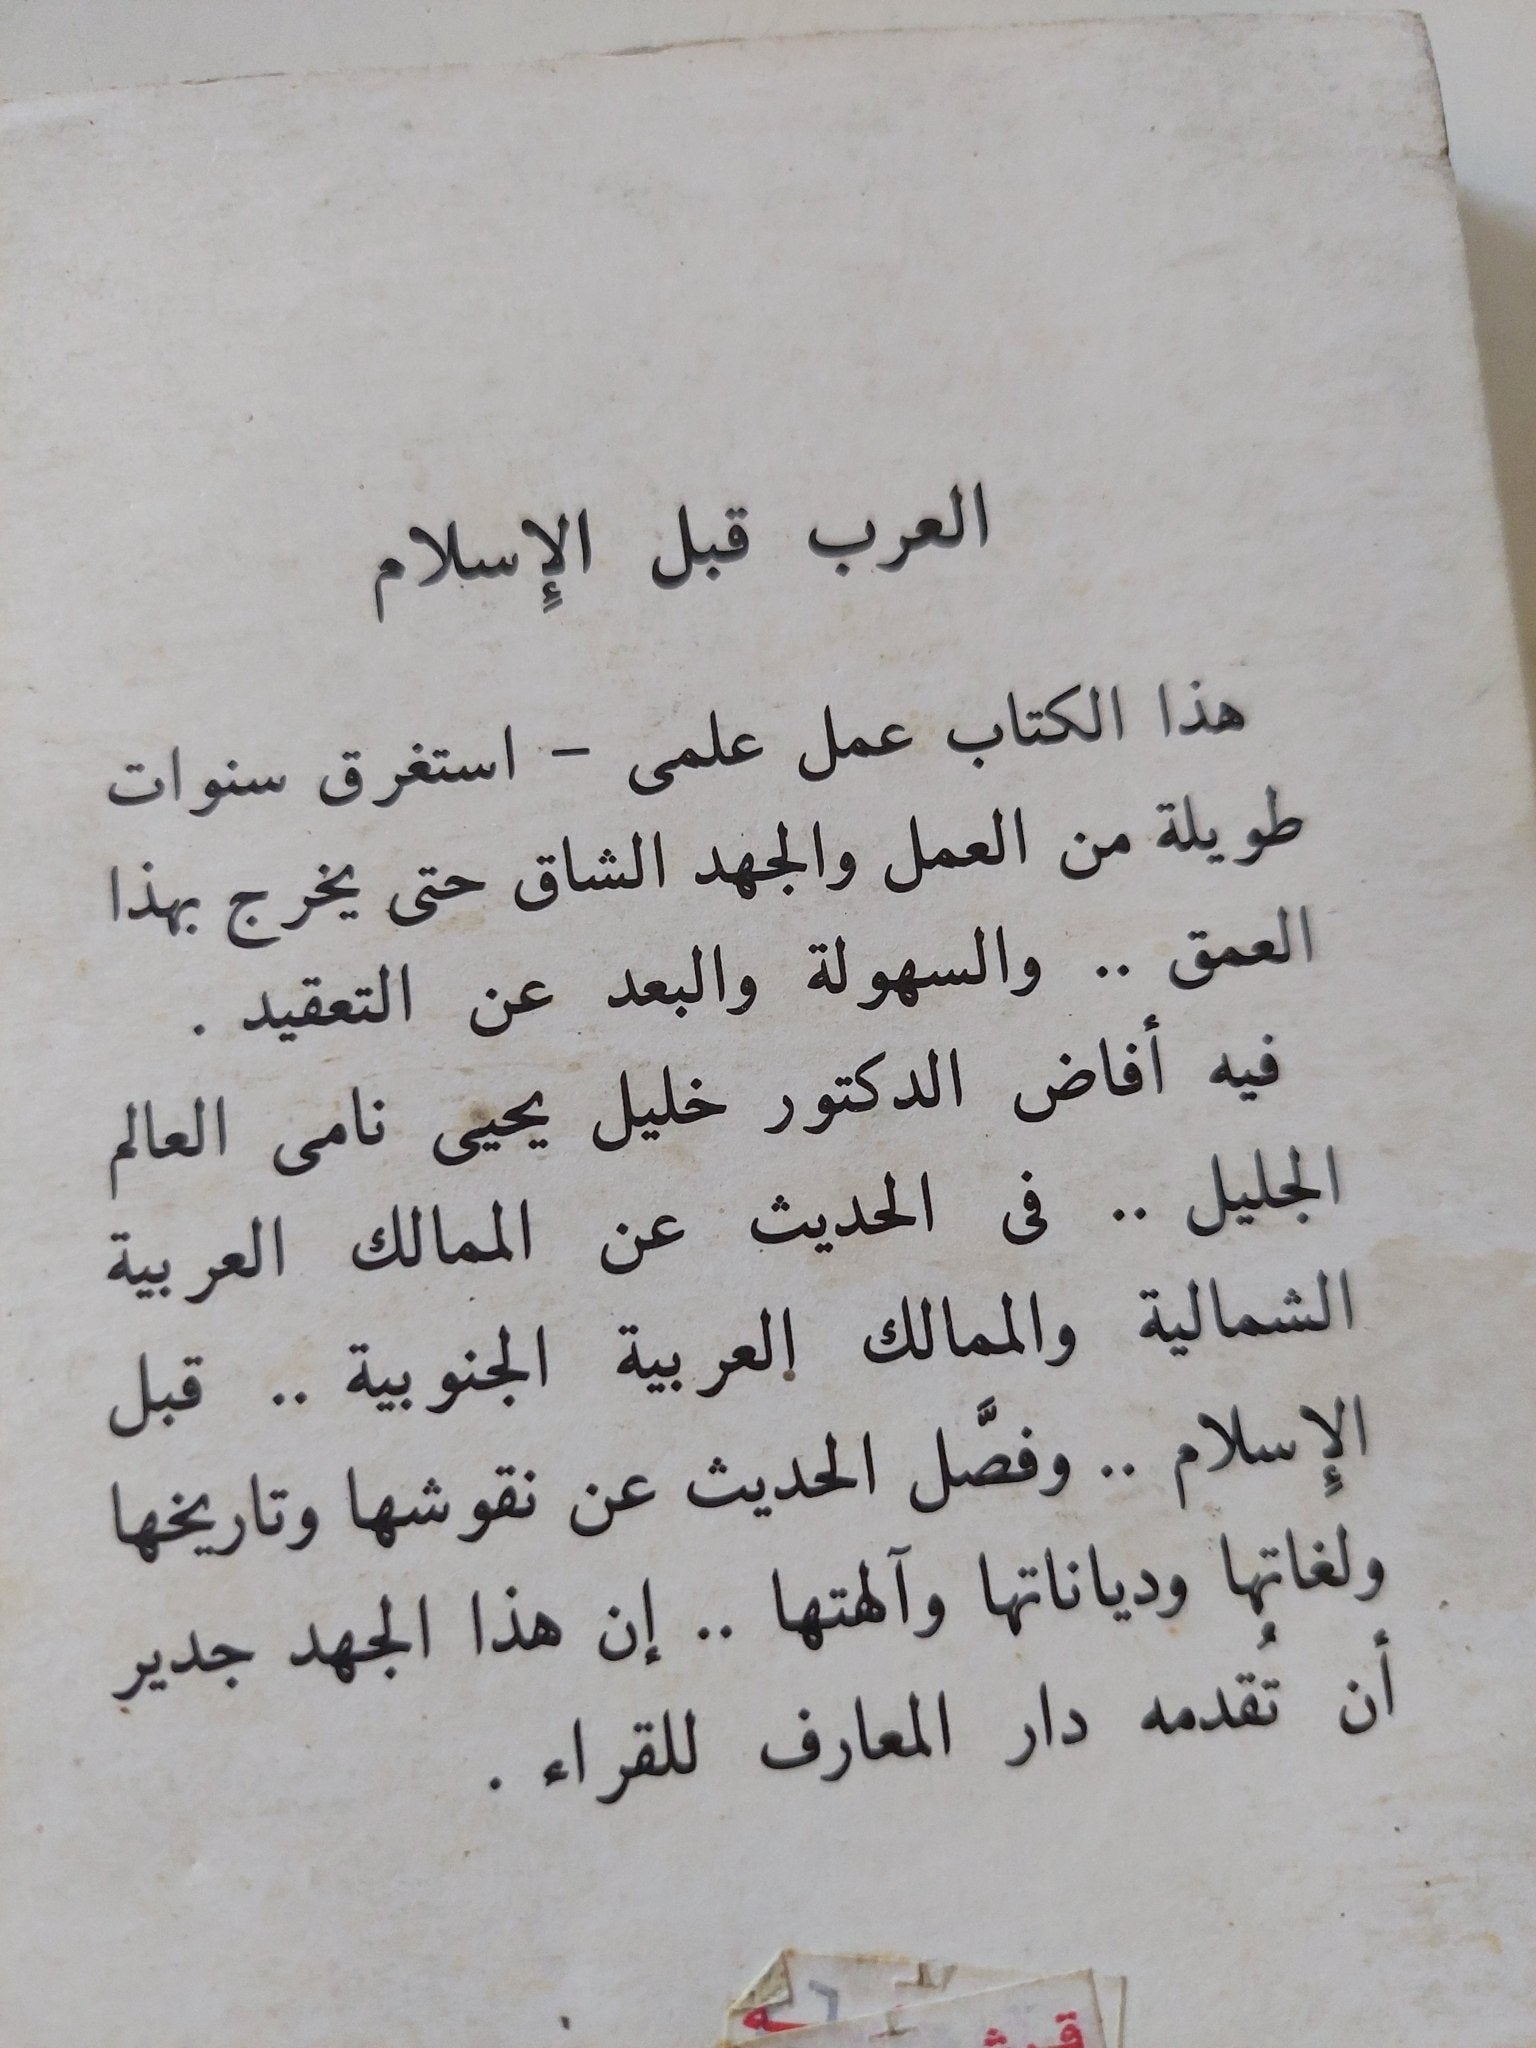 العرب قبل الإسلام
هذا الكتاب عمل علمى – استغرق سنوات
طويلة من العمل والجهد الشاق حتى يخرج بهذا
العمق .. والسهولة والبعد عن التعقيد .
فيه أفاض الدكتور خليل يحيى نامى العالم
الجليل .. فى الحديث عن الممالك العربية
الشمالية والممالك العربية الجنوبية .. قبل
الإسلام .. وفصَّل الحديث عن نقوشها وتاريخها
ولغاتها ودياناتها وآلهتها .. إن هذا الجهد جدير
أن تُقدمه دار المعارف للقراء .